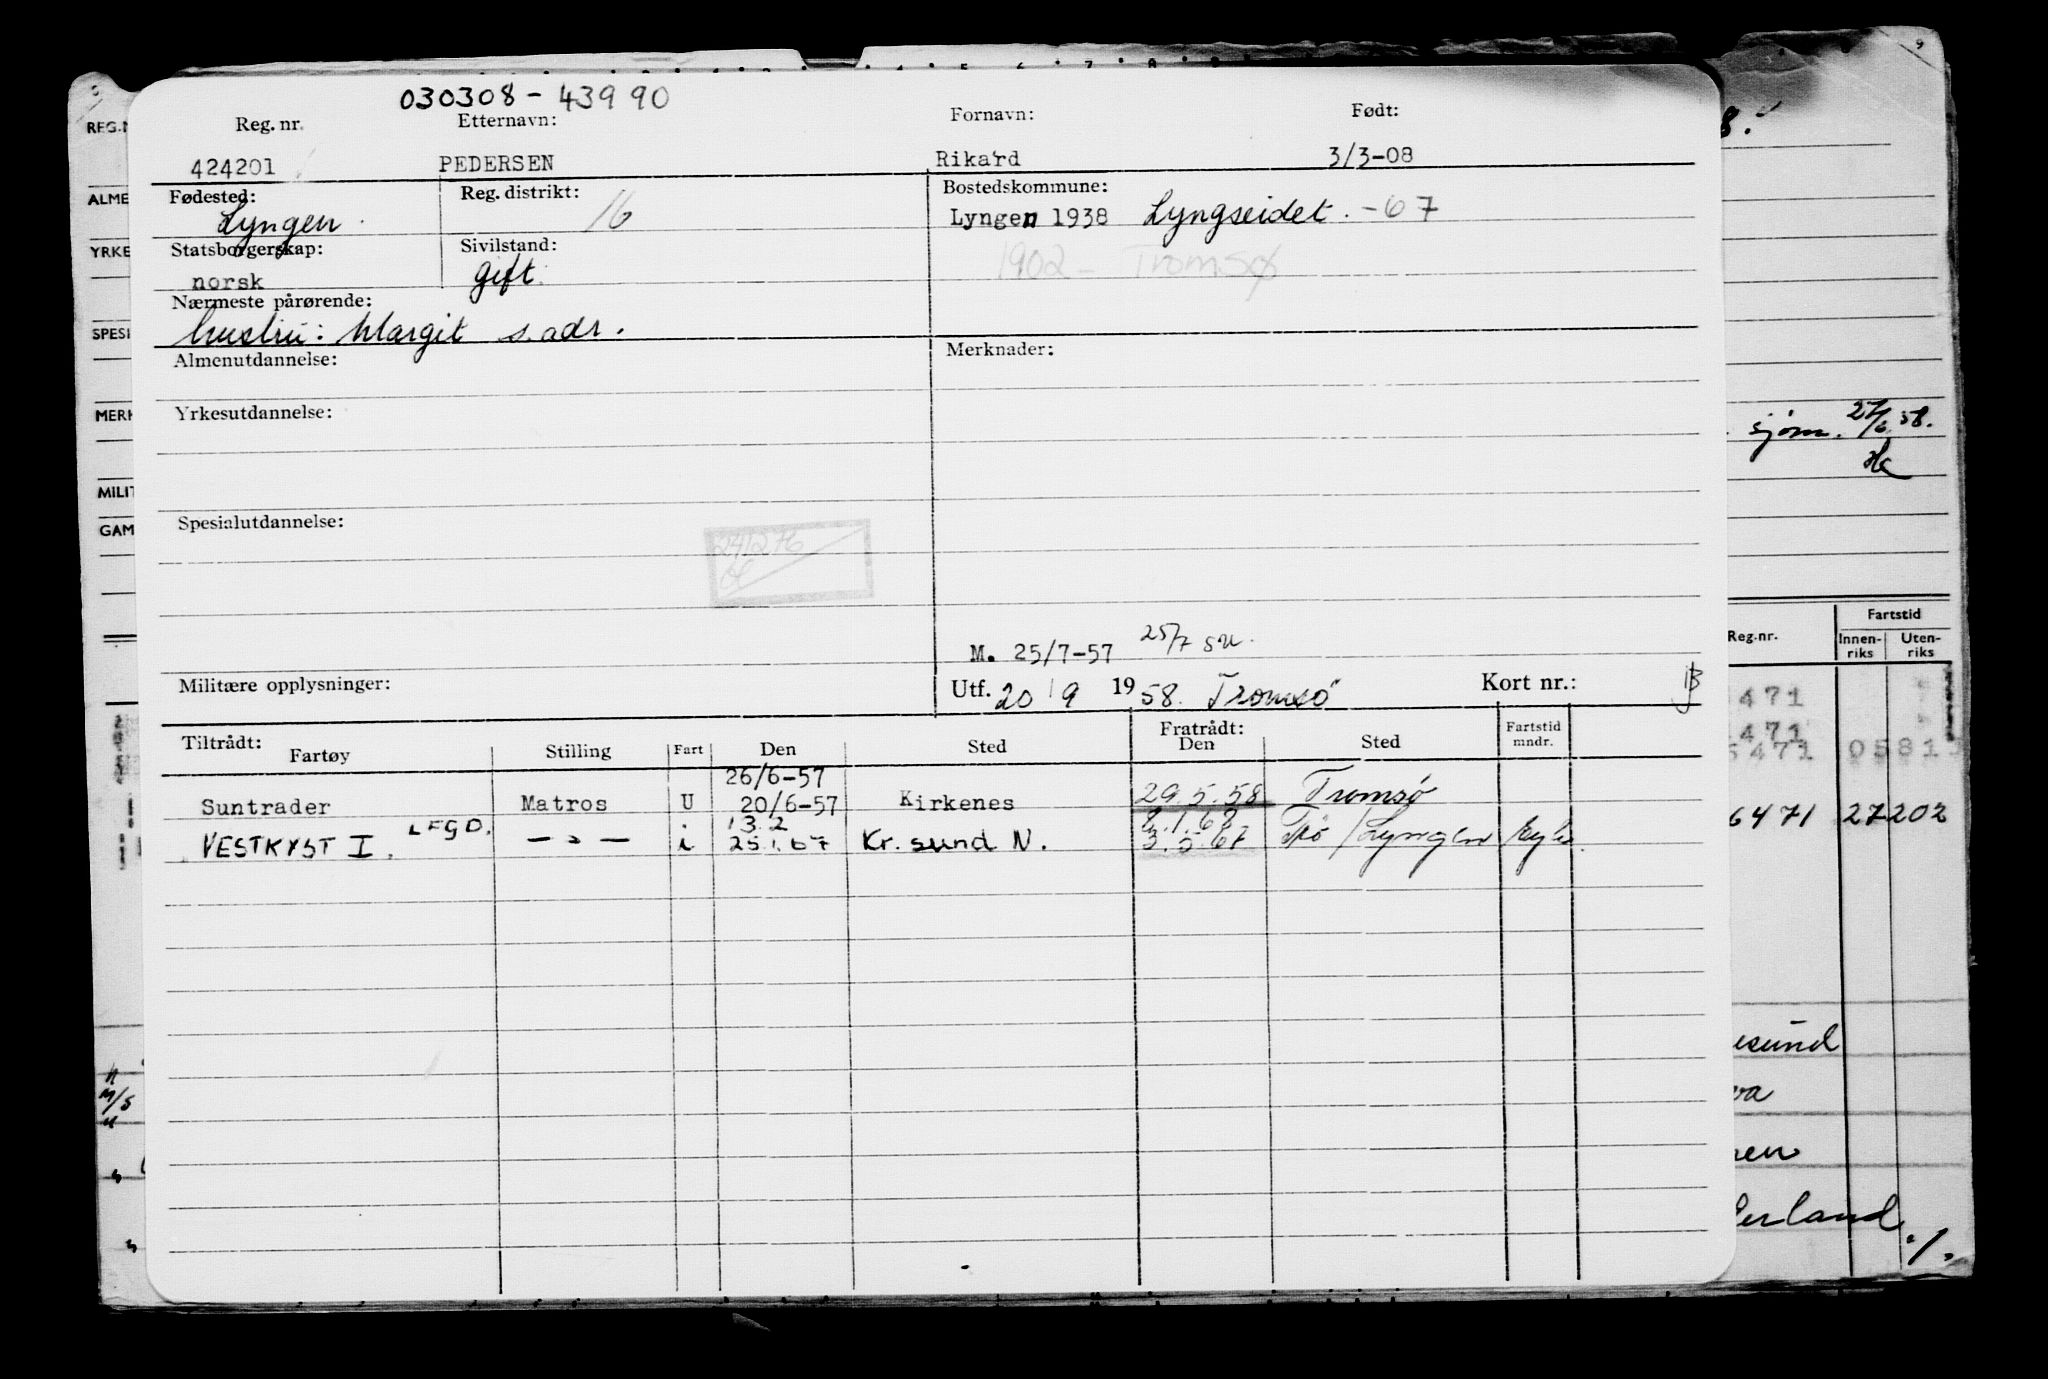 030308-43990
Reg. nr. Etternavn: Fornavn: Født:
424201 PEDERSEN Rikard 3/3-08
Fødested: Reg. distrikt: Bostedskommune:
Lyngen 16 Lyngen 1938 Lyngseidet. -67
Statsborgerskap: Sivilstand:
norsk gift. 1902 - Tromsø
Nærmeste pårørende:
hustru: Margit s. adr.
Almenutdannelse: Merknader:
Yrkesutdannelse:
Spesialutdannelse:
241276
M. 25/7-57 25/7 su.
Militære opplysninger: Utf. 20/9 1958. Tromsö Kort nr.:
Tiltrådt: Fratrådt:
Fartøy Stilling Fart Den Sted Den Sted Fartstid mndr.
26/6-57
Suntrader Matros U 20/6-57 Kirkenes 29.5.58 Tromsö
LFGD. i 13.2 8.1.68
VESTKYST I. — " — i 25.1.67 Kr. sund N. 3.5.67 Tsø/Lyngen
REG.N
ALME
YRKE
SPESI
MERK
MILIT
GAM
8.
sjøm. 27/6 58.
Reg.nr. Fartstid
Innen-riks Uten-riks
471
471
5471 0581
6471 27 202
esund
va
nen
erland
./.
M/S